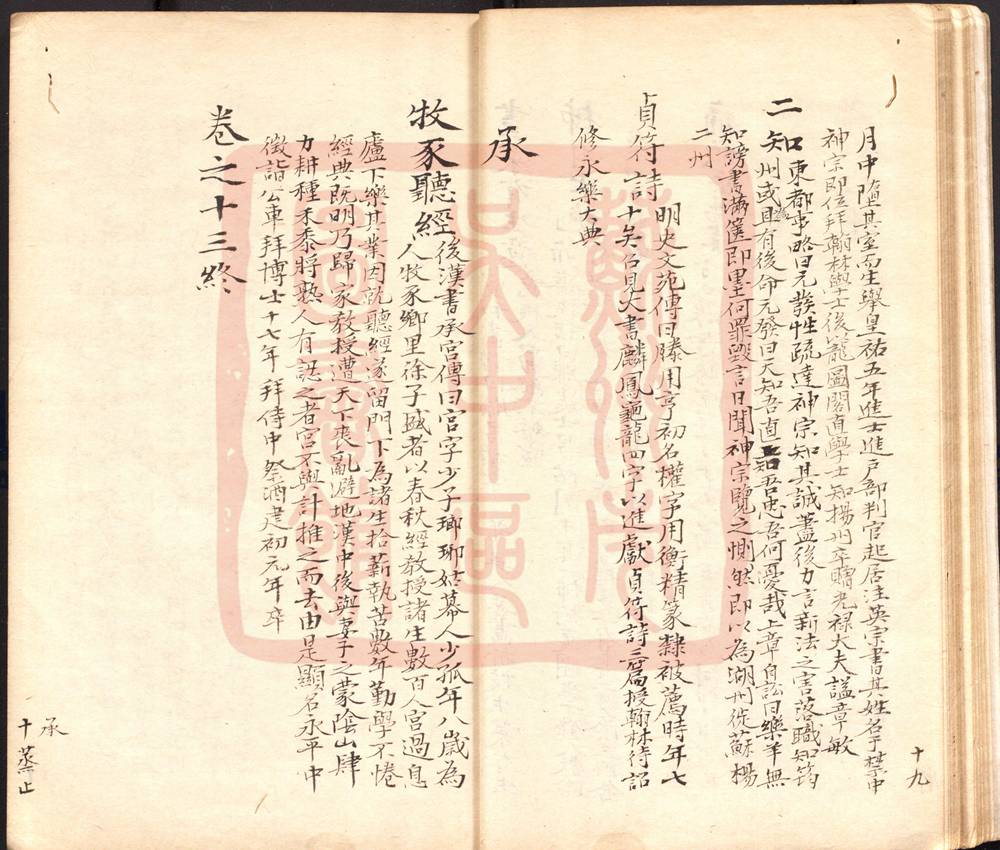 月中墮其室而生舉皇祐五年進士進戶部判官起居注英宗書其姓名于禁中
神宗即位拜翰林學士後龍圖閣直學士知揚州卒贈光祿大夫謚章敏
二知
東都事略曰元發性疏達神宗知其誠藎後力言新法之害落職知筠
州或且有後命元發曰天知吾直上知吾忠吾何憂哉上章自訟曰樂羊無
知謗書滿篋即墨何罪毀言日聞神宗覽之惻然即以為湖州徙蘇揚
二州
貞符詩
明史文苑傳曰滕用亨初名權字用衡精篆隸被薦時年七
十矣召見大書麟鳳龜龍四字以進獻貞符詩三篇授翰林待詔
修永樂大典
承
牧豕聽經
後漢書承宮傳曰宮字少子瑯琊姑幕人少孤年八歲為
人牧豕鄉里徐子盛者以春秋經教授諸生數百人宮過息
廬下樂其業因就聽經遂留門下為諸生拾薪執苦數年勤學不倦
經典既明乃歸家教授遭天下喪亂避地漢中後與妻子之蒙陰山肆
力耕種禾黍將熟人有認之者宮不與計推之而去由是顯名永平中
徵詣公車拜博士十七年拜侍中祭酒建初元年卒
卷之十三終
十九
承
十蒸止